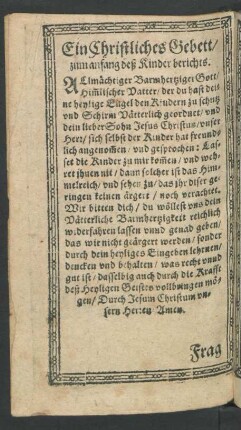 Ein Christliches Gebett/
zum anfang deß Kinder berichts.
ALmächtiger Barmhertziger Gott/
Him̃lischer Vatter/ der du hast dei-
ne heylige Engel den Kindern zu schutz
vnd Schirm Vätterlich geordnet/ vnd
dein lieber Sohn Jesus Christus/ vnser
Herr/ sich selbst der Kinder hat freund-
lich angenom̃en/ vnd gesprochen: Las-
set die Kinder zu mir kom̃en/ vnd weh-
ret jhnen nit/ dann solcher ist das Him-
melreich/ vnd sehen zu/ das jhr diser ge-
ringen keinen ärgert/ noch verachtet.
Wir bitten dich/ du wöllest vns dein
Vätterliche Barmhertzigkeit reichlich
widerfahren lassen vnnd genad geben/
das wir nicht geärgert werden/ sonder
durch dein heyliges Eingeben lehrnen/
dencken vnd behalten/ was recht vnnd
gut ist/ dasselbig auch durch die Krafft
deß Heyligen Geistes vollbringen mö-
gen/ Durch Jesum Christum vn-
sern Herren Amen.
Frag